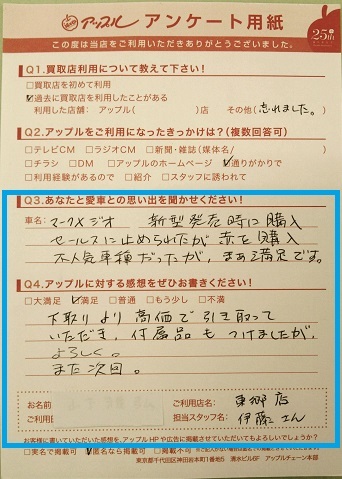 アップル アンケート用紙
25th
この度は当店をご利用いただきありがとうございました。
Q1.買取店利用について教えて下さい!
□買取店を初めて利用
☑過去に買取店を利用したことがある
利用した店舗: アップル( )店 その他(忘れました。)
Q2.アップルをご利用になったきっかけは?(複数回答可)
□テレビCM □ラジオCM □新聞・雑誌(媒体名/ )
□チラシ □DM □アップルのホームページ ☑通りがかりで
□利用経験があるので □紹介 □スタッフに誘われて
Q3.あなたと愛車との思い出を聞かせください!
車名: マークXジオ 新型発売時に購入
セールスに止められたが赤を購入
不人気車種だったが、まあ満足です。
Q4.アップルに対する感想をぜひお書きください!
□大満足 ☑満足 □普通 □もう少し □不満
下取りより高価で引き取って
いただき、付属品もつけましたが、
よろしく。
また次回。
お名前 ご利用店名: 東郷店
ご利用日 担当スタッフ名: 伊藤さん
お客様に書いていただいた感想を、アップルHPや広告に掲載させていただいてもよろしいでしょうか?
□実名で掲載可 ☑匿名なら掲載可 □掲載不可
東京都千代田区神田岩本町1番地5 清水ビル6F アップルチェーン本部